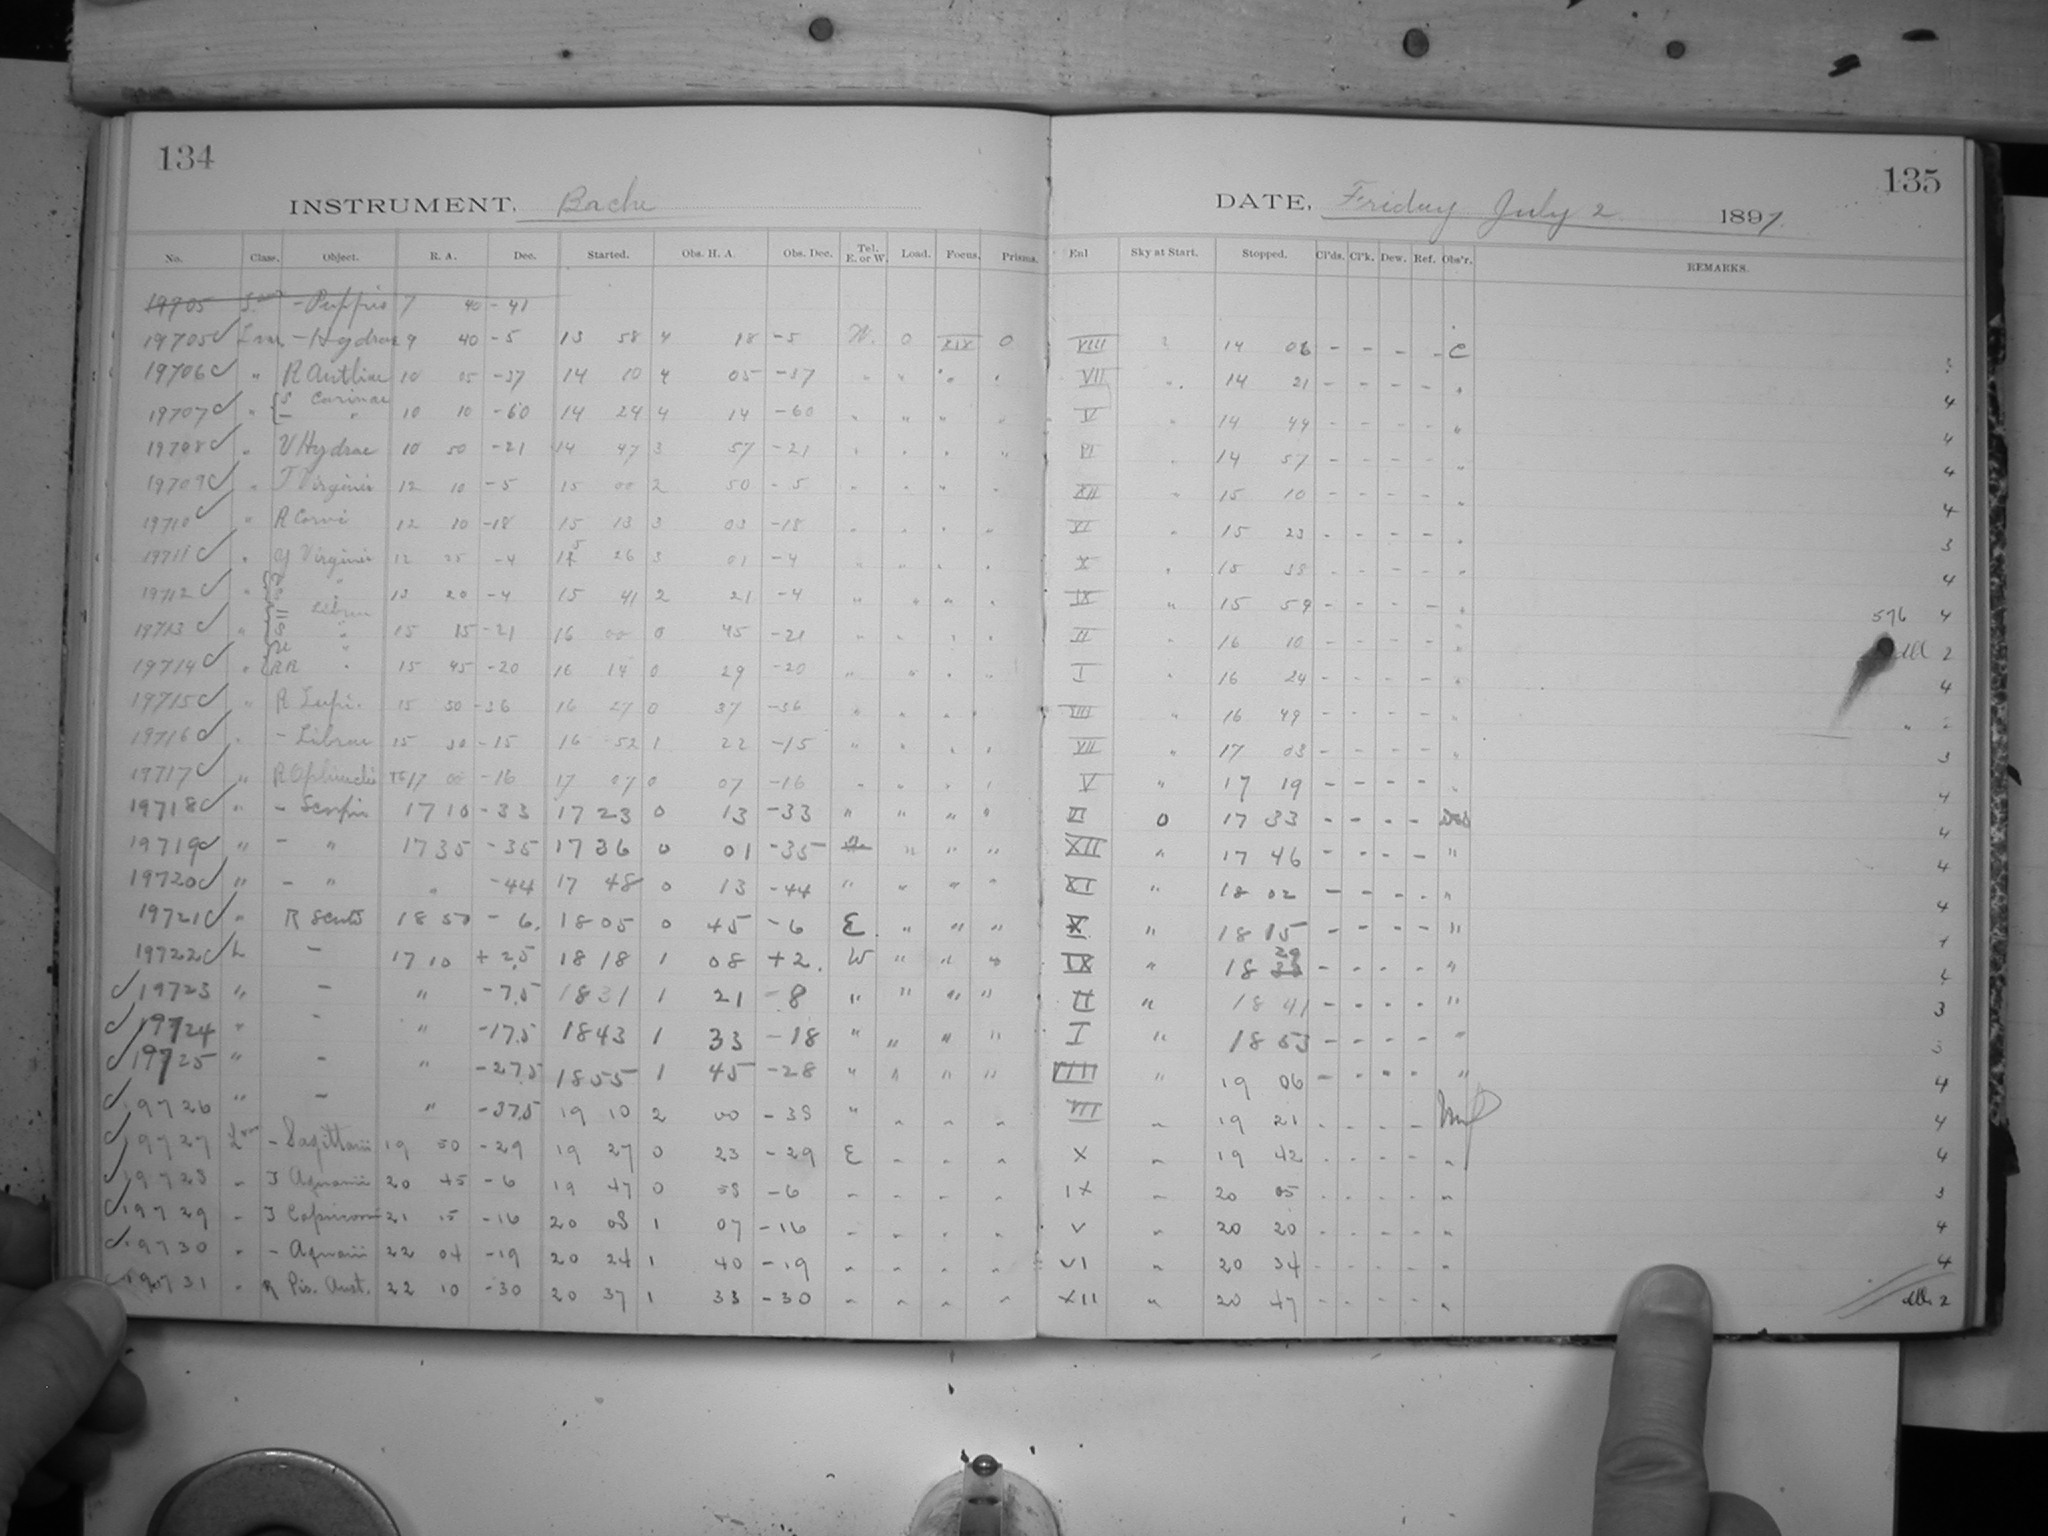 134
135
INSTRUMENT. Bache
DATE, Friday July 2 1897.
No. Class. Object. R. A. Dec. Started. Obs. H. A. Obs. Dec. Tel. E. or W. Load. Focus. Prisms. Enl Sky at Start. Stopped. Cl'ds. Cl'k. Dew. Ref. Obs'r. REMARKS.
19705 - Puppis 7 40 - 41
19705 - Hydrae 9 40 - 5 13 58 4 18 - 5 W. 0 XIX 0 VIII 14 08 - - - - C
19706 " R Antliae 10 05 -37 14 10 4 05 -37 " " " " VII " 14 21 - - - - " 4
19707 " S Carinae 10 10 -60 14 24 4 14 -60 " " " " V " 14 44 - - - - " 4
19708 " V Hydrae 10 50 -21 14 47 3 57 -21 " " " " VI " 14 57 - - - - " 4
19709 " T Virginis 12 10 - 5 15 00 2 50 - 5 " " " " XII " 15 10 - - - - " 4
19710 " R Corvi 12 10 -18 15 13 3 03 -18 " " " " XI " 15 23 - - - - " 3
19711 " Y Virginis 12 25 -4 15 26 3 01 -4 " " " " X " 15 38 - - - - " 4
19712 " " 13 20 -4 15 41 2 21 -4 " " " " IX " 15 59 - - - - " 576 4
19713 " S Librae " 15 15 -21 16 00 0 45 -21 " " " " II " 16 10 - - - - " 2
19714 " RR " 15 45 -20 16 14 0 29 -20 " " " " I " 16 24 - - - - " 4
19715 " R Lupi. 15 50 -36 16 27 0 37 -36 " " " " VIII " 16 49 - - - - " " 2
19716 " - Librae 15 30 -15 16 52 1 22 -15 " " " " VII " 17 03 - - - - " 3
19717 " R Ophiuchi 17 00 -16 17 07 0 07 -16 " " " " V " 17 19 - - - - " 4
19718 " - Scorpii 17 10 -33 17 23 0 13 -33 " " " " VI 0 17 33 - - - - 4
19719 " - " 17 35 -35 17 36 0 01 -35 " " " XII " 17 46 - - - - " 4
19720 " - " " -44 17 48 0 13 -44 " " " " XI " 18 02 - - - - " 4
19721 " R Scuti 18 50 - 6. 18 05 0 45 -6 E. " " " X " 18 15 - - - - "
19722 L - 17 10 + 2.5 18 18 1 08 +2. W " " " IX " 18 29 - - - - " 4
19723 " - " -7.5 18 31 1 21 -8 " " " " II " 18 41 - - - - " 3
19724 " - " -17.5 18 43 1 33 -18 " " " " I " 18 53 - - - - " 3
19725 " - " -27.5 18 55 1 45 -28 " " " " VIII " 19 06 - - - - " 4
19726 " - " -37.5 19 10 2 00 -38 " " " " VII " 19 21 - - - - 4
19727 - Sagittarii 19 50 -29 19 27 0 23 -29 E " " " X " 19 42 - - - - " 4
19728 " T Aquarii 20 45 -6 19 47 0 58 -6 " " " " IX " 20 05 - - - - " 3
19729 " T Capricorni 21 15 -16 20 08 1 07 -16 " " " " V " 20 20 - - - - " 4
19730 " - Aquarii 22 04 -19 20 24 1 40 -19 " " " " VI " 20 34 - - - - " 4
19731 " R Pis. Aust. 22 10 -30 20 37 1 33 -30 " " " " XII " 20 47 - - - - " 2